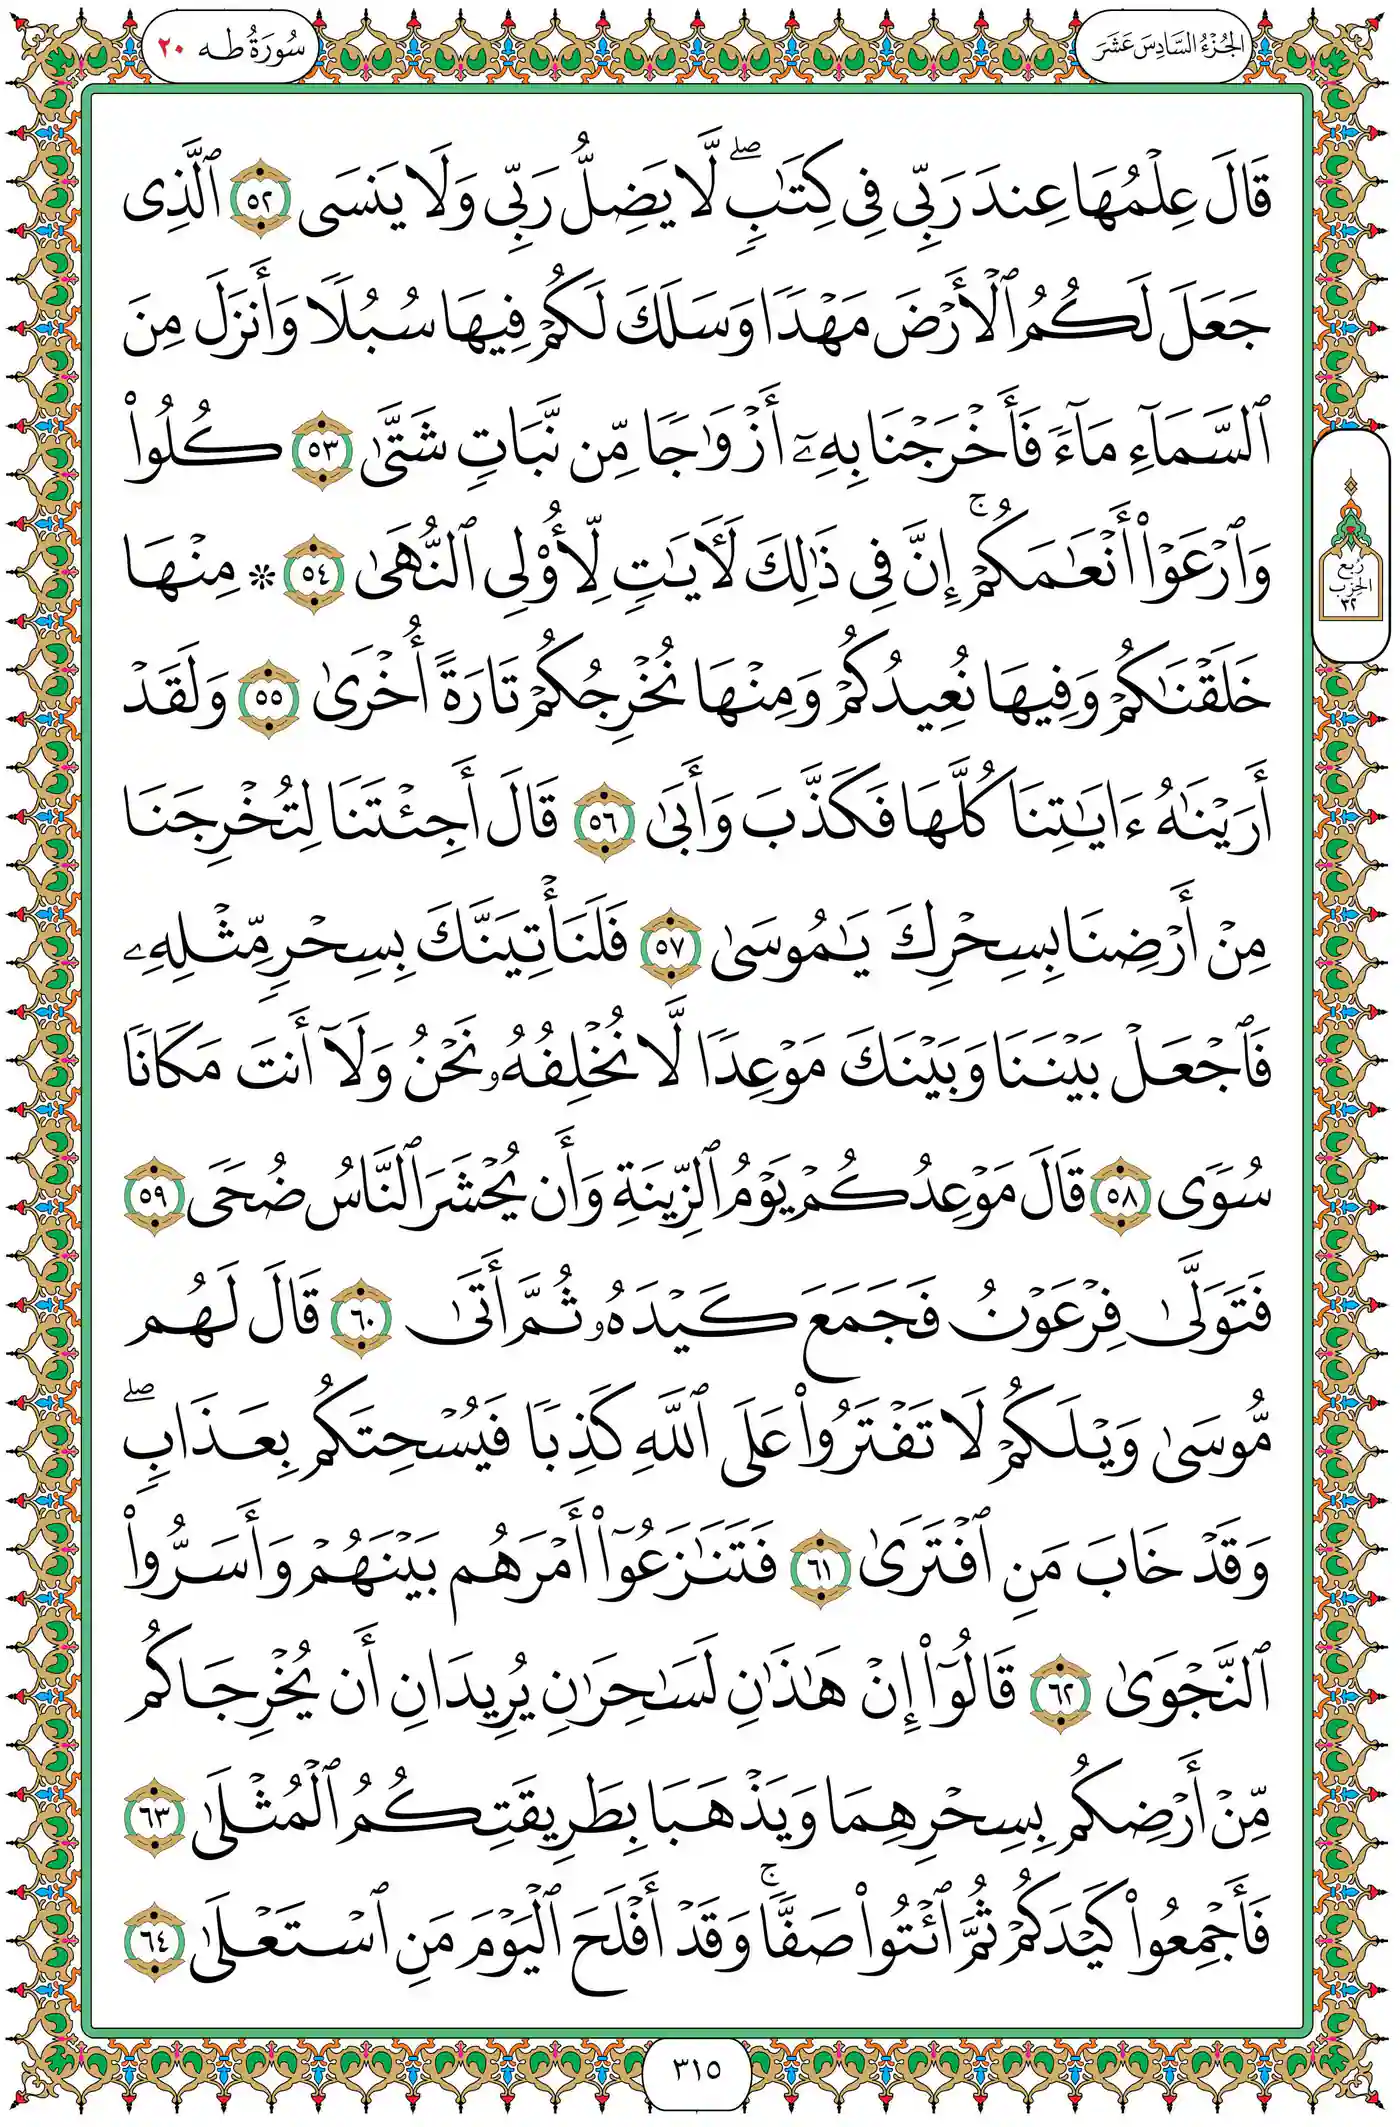 الجُزْءُ السَّادِسَ عَشَرَ
سُورَةُ طه ٢٠
قَالَ عِلْمُهَا عِندَ رَبِّي فِي كِتَٰبٍۖ لَّا يَضِلُّ رَبِّي وَلَا يَنسَى ٥٢ ٱلَّذِي
جَعَلَ لَكُمُ ٱلْأَرْضَ مَهْدًا وَسَلَكَ لَكُمْ فِيهَا سُبُلًا وَأَنزَلَ مِنَ
ٱلسَّمَآءِ مَآءً فَأَخْرَجْنَا بِهِۦٓ أَزْوَٰجًا مِّن نَّبَاتٍ شَتَّىٰ ٥٣ كُلُوا۟
وَٱرْعَوْا۟ أَنْعَٰمَكُمْۚ إِنَّ فِي ذَٰلِكَ لَءَايَٰتٍ لِّأُو۟لِي ٱلنُّهَىٰ ٥٤ ۞ مِنْهَا
خَلَقْنَٰكُمْ وَفِيهَا نُعِيدُكُمْ وَمِنْهَا نُخْرِجُكُمْ تَارَةً أُخْرَىٰ ٥٥ وَلَقَدْ
أَرَيْنَٰهُ ءَايَٰتِنَا كُلَّهَا فَكَذَّبَ وَأَبَىٰ ٥٦ قَالَ أَجِئْتَنَا لِتُخْرِجَنَا
مِنْ أَرْضِنَا بِسِحْرِكَ يَٰمُوسَىٰ ٥٧ فَلَنَأْتِيَنَّكَ بِسِحْرٍ مِّثْلِهِۦ
فَٱجْعَلْ بَيْنَنَا وَبَيْنَكَ مَوْعِدًا لَّا نُخْلِفُهُۥ نَحْنُ وَلَآ أَنتَ مَكَانًا
سُوًى ٥٨ قَالَ مَوْعِدُكُمْ يَوْمُ ٱلزِّينَةِ وَأَن يُحْشَرَ ٱلنَّاسُ ضُحًى ٥٩
فَتَوَلَّىٰ فِرْعَوْنُ فَجَمَعَ كَيْدَهُۥ ثُمَّ أَتَىٰ ٦٠ قَالَ لَهُم
مُّوسَىٰ وَيْلَكُمْ لَا تَفْتَرُوا۟ عَلَى ٱللَّهِ كَذِبًا فَيُسْحِتَكُم بِعَذَابٍۖ
وَقَدْ خَابَ مَنِ ٱفْتَرَىٰ ٦١ فَتَنَٰزَعُوٓا۟ أَمْرَهُم بَيْنَهُمْ وَأَسَرُّوا۟
ٱلنَّجْوَىٰ ٦٢ قَالُوٓا۟ إِنْ هَٰذَٰنِ لَسَٰحِرَٰنِ يُرِيدَانِ أَن يُخْرِجَاكُم
مِّنْ أَرْضِكُم بِسِحْرِهِمَا وَيَذْهَبَا بِطَرِيقَتِكُمُ ٱلْمُثْلَىٰ ٦٣
فَأَجْمِعُوا۟ كَيْدَكُمْ ثُمَّ ٱئْتُوا۟ صَفًّاۚ وَقَدْ أَفْلَحَ ٱلْيَوْمَ مَنِ ٱسْتَعْلَىٰ ٦٤
رُبْعُ
الحِزْبِ
٣٢
٣١٥